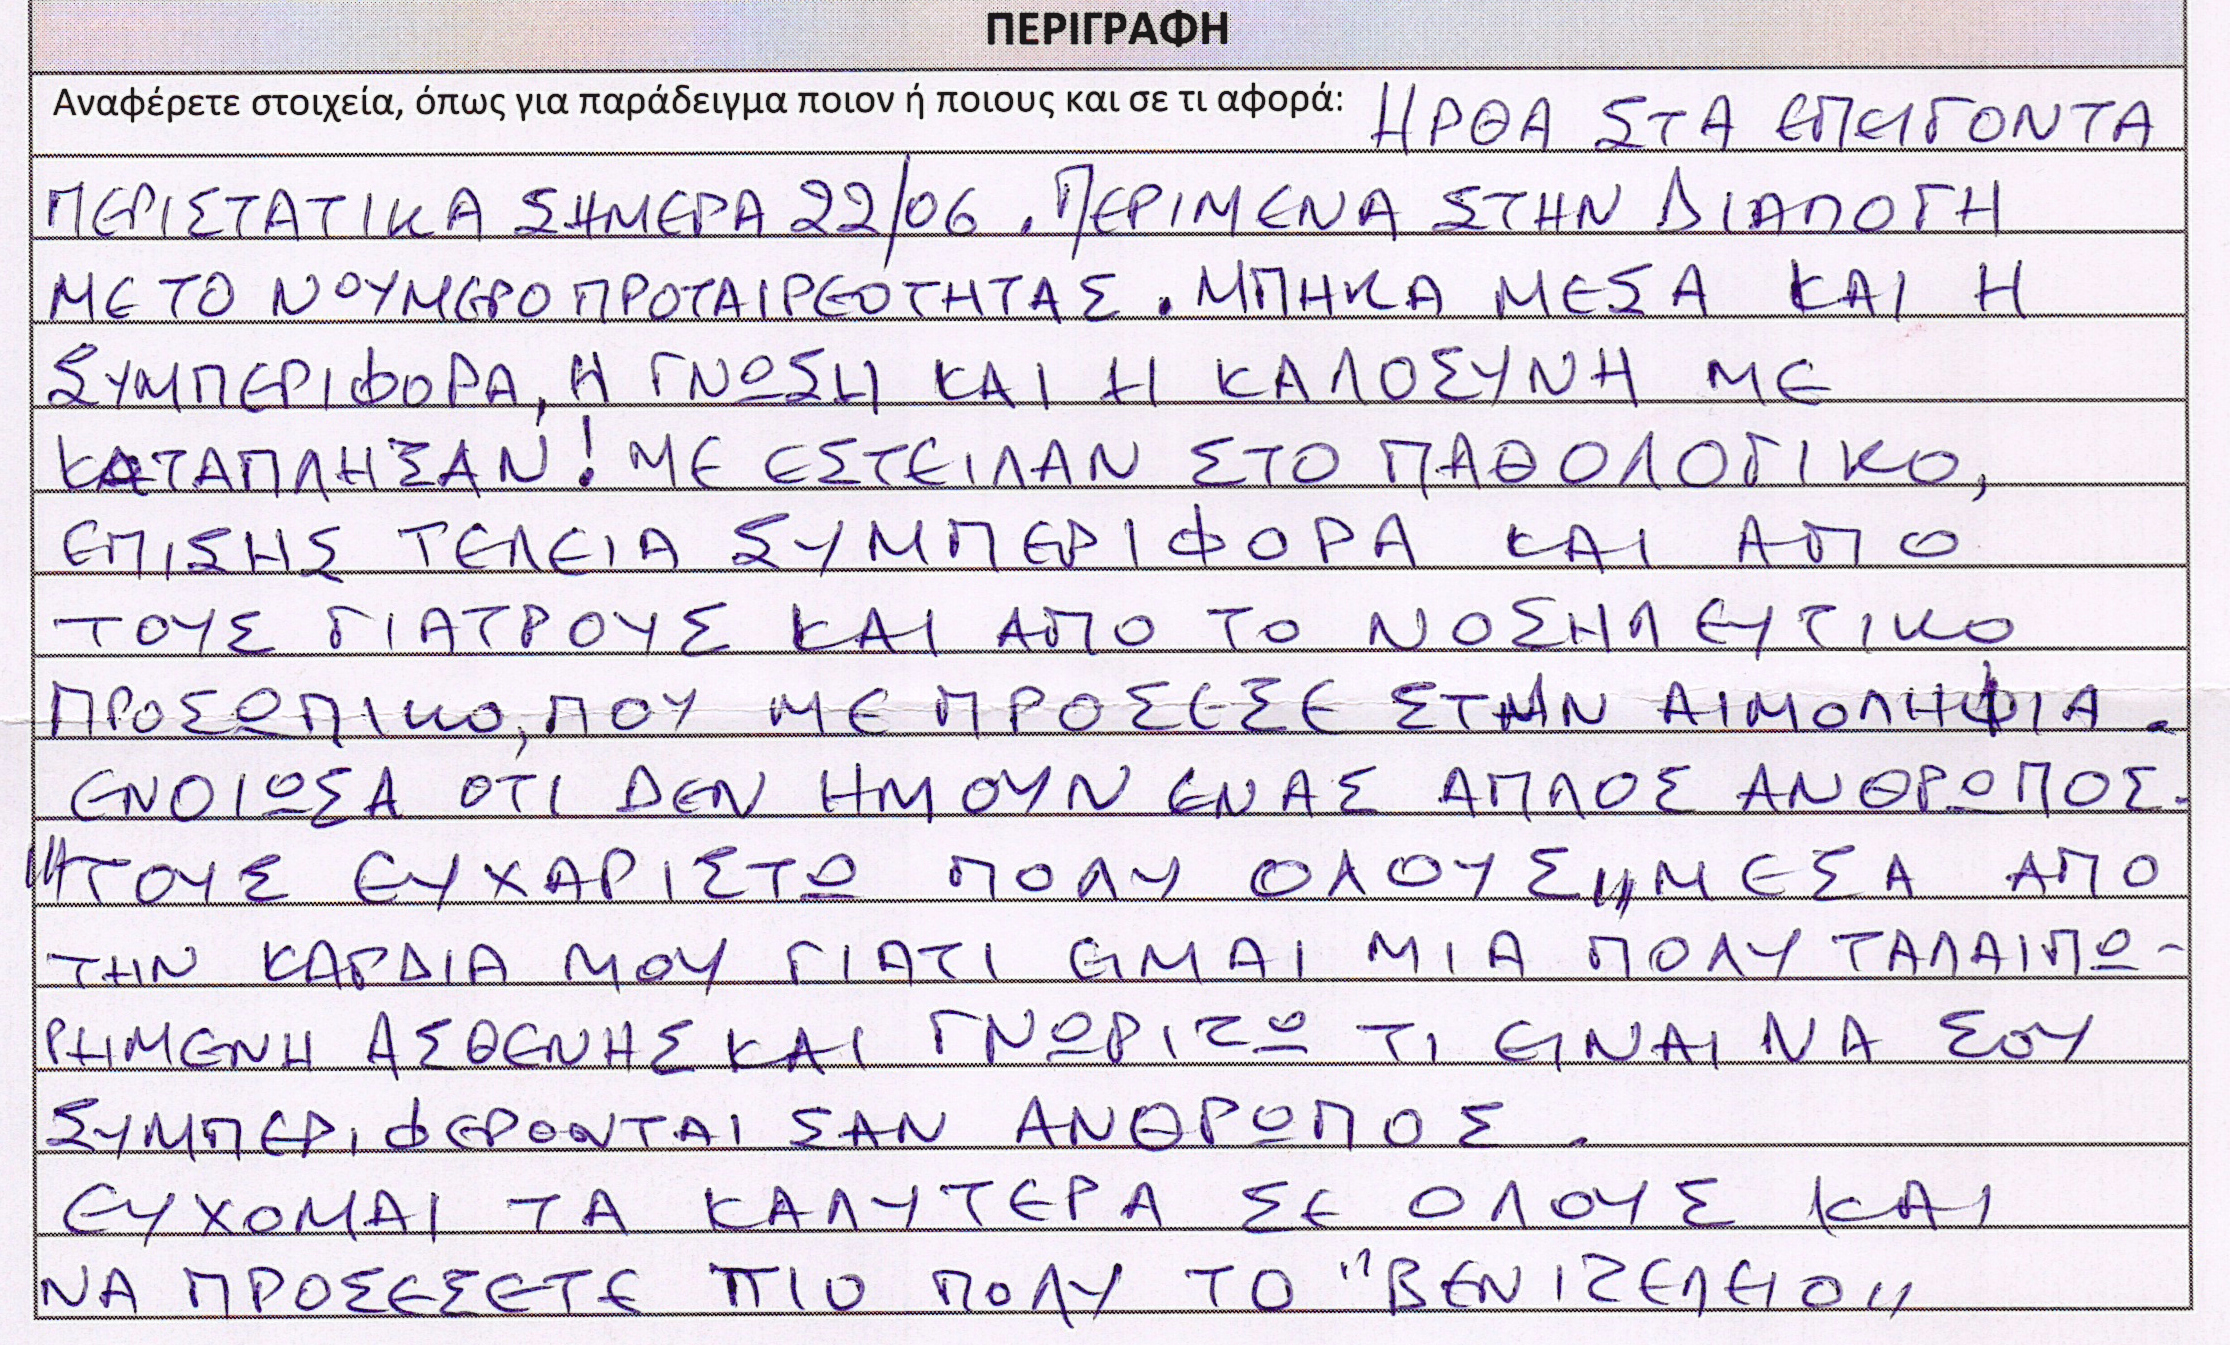 ΠΕΡΙΓΡΑΦΗ
Αναφέρετε στοιχεία, όπως για παράδειγμα ποιον ή ποιους και σε τι αφορά: ΗΡΘΑ ΣΤΑ ΕΠΕΙΓΟΝΤΑ
ΠΕΡΙΣΤΑΤΙΚΑ ΣΗΜΕΡΑ 22/06. ΠΕΡΙΜΕΝΑ ΣΤΗΝ ΔΙΑΛΟΓΗ
ΜΕ ΤΟ ΝΟΥΜΕΡΟ ΠΡΟΤΑΙΡΕΟΤΗΤΑΣ. ΜΠΗΚΑ ΜΕΣΑ ΚΑΙ Η
ΣΥΜΠΕΡΙΦΟΡΑ, Η ΓΝΩΣΗ ΚΑΙ Η ΚΑΛΟΣΥΝΗ ΜΕ
ΚΑΤΑΠΛΗΣΑΝ! ΜΕ ΕΣΤΕΙΛΑΝ ΣΤΟ ΠΑΘΟΛΟΓΙΚΟ,
ΕΠΙΣΗΣ ΤΕΛΕΙΑ ΣΥΜΠΕΡΙΦΟΡΑ ΚΑΙ ΑΠΟ
ΤΟΥΣ ΓΙΑΤΡΟΥΣ ΚΑΙ ΑΠΟ ΤΟ ΝΟΣΗΛΕΥΤΙΚΟ
ΠΡΟΣΩΠΙΚΟ, ΠΟΥ ΜΕ ΠΡΟΣΕΞΕ ΣΤΗΝ ΑΙΜΟΛΗΨΙΑ.
ΕΝΟΙΩΣΑ ΟΤΙ ΔΕΝ ΗΜΟΥΝ ΕΝΑΣ ΑΠΛΟΣ ΑΝΘΡΩΠΟΣ.
"ΤΟΥΣ ΕΥΧΑΡΙΣΤΩ ΠΟΛΥ ΟΛΟΥΣ" ΜΕΣΑ ΑΠΟ
ΤΗΝ ΚΑΡΔΙΑ ΜΟΥ ΓΙΑΤΙ ΕΙΜΑΙ ΜΙΑ ΠΟΛΥ ΤΑΛΑΙΠΩ-
ΡΗΜΕΝΗ ΑΣΘΕΝΗΣ ΚΑΙ ΓΝΩΡΙΖΩ ΤΙ ΕΙΝΑΙ ΝΑ ΣΟΥ
ΣΥΜΠΕΡΙΦΕΡΟΝΤΑΙ ΣΑΝ ΑΝΘΡΩΠΟΣ.
ΕΥΧΟΜΑΙ ΤΑ ΚΑΛΥΤΕΡΑ ΣΕ ΟΛΟΥΣ ΚΑΙ
ΝΑ ΠΡΟΣΕΞΕΤΕ ΠΙΟ ΠΟΛΥ ΤΟ "ΒΕΝΙΖΕΛΕΙΟ"